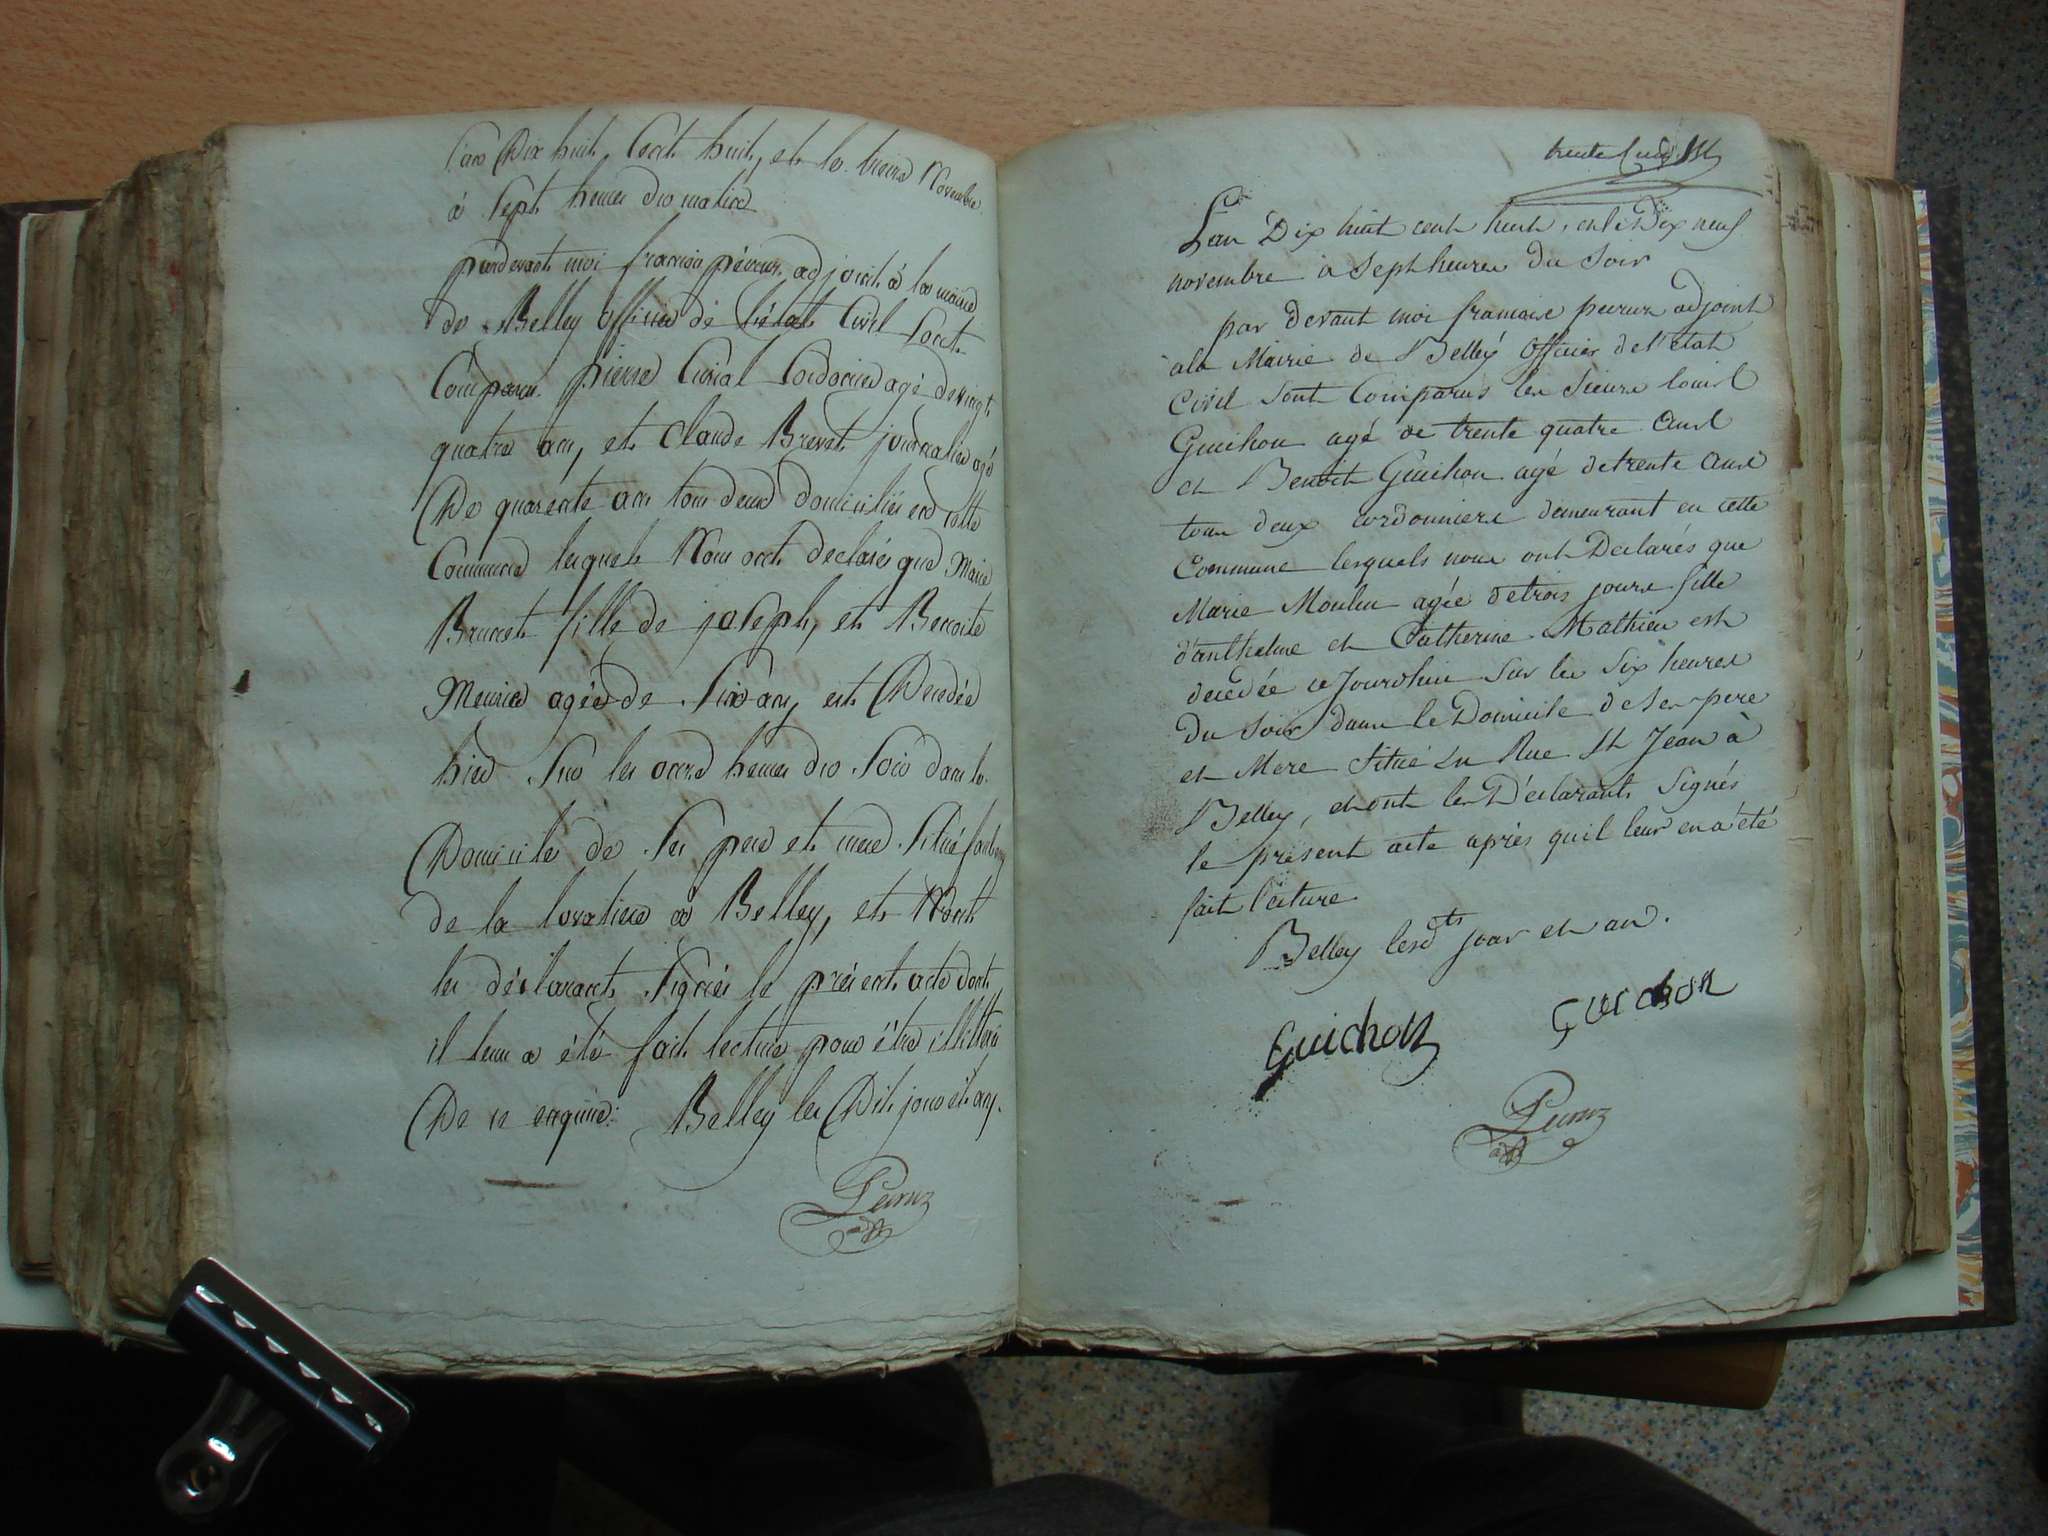 L'an Dix huit Cent huit, et le treize Novembre
à Sept heures du matin
pardevant moi françois péruz adjoint à la mairie
de Belley officier de l'état Civil Sont
Comparus pierre Cordonnier agé de vingt
quatre ans, et Claude Brevet journalier agé
De quarente ans tous deux domiciliés en cette
Commune lesquels Nous ont déclarés que Marie
Brunet fille de joseph, et Benoite
Meunier agée de Six ans, est Décédée
hier Sur les onze heures du Soir dans le
Domicile de Ses pere et mere Situé faubourg
de la à Belley, et N'ont
les déclarants Signés le présent acte dont
il leur a été fait lecture pour être illittérés
De ce enquis. Belley les Dits jour et an.
Peruz
adjt
trente
Lan Dix huit cent huit, et le Dix neuf
novembre à Sept heures du Soir
par devant moi francois peruz adjoint
ala Mairie de Belley officier de l'état
Civil Sont Comparus les Sieurs louis
Guichon agé de trente quatre ans
et Benoit Guichon agé de trente ans
tous deux cordonniers demeurant en cette
Commune lesquels nous ont Déclarés que
Marie Moulin agée de trois jours fille
d'anthelme et Catherine Mathieu est
décédée ce Jourdhui Sur les Six heures
Du Soir dans le Domicile de Ses pere
et Mere Situé en Rue St Jean à
Belley, et ont les Déclarants Signés
le présent acte après quil leur en a été
fait lecture
Belley lesdts jour et an.
Guichon Guichon
Peruz
adjt